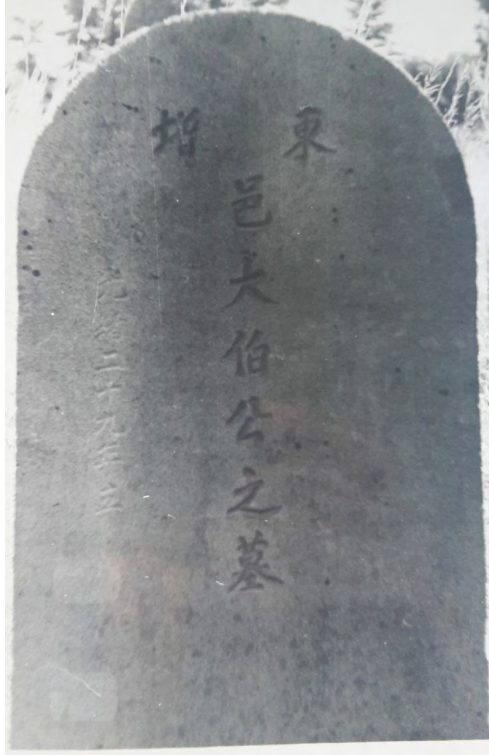 東增
邑大伯公之墓
光緒二十九年立